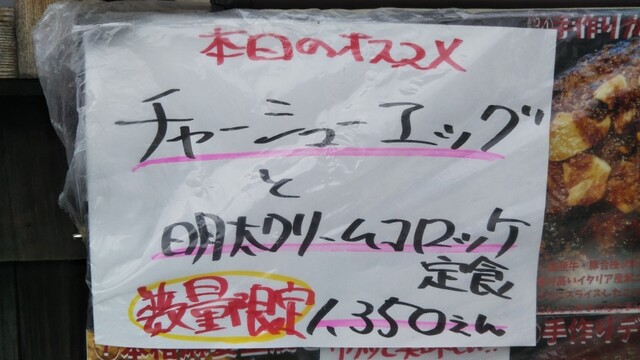 本日のオススメ
チャーシューエッグ
と
明太クリームコロッケ
定食
数量限定 1,350えん
手作り